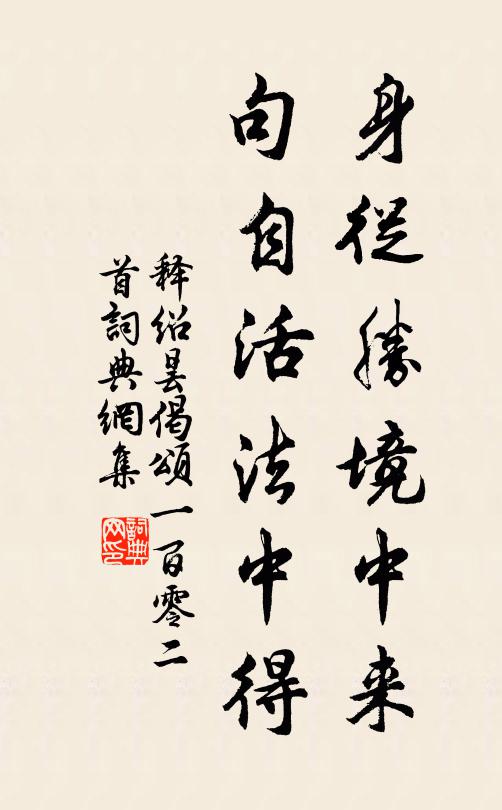 身從勝境中来
句自活法中得
释绍昙偈頌一百零二
首詞典網集
詞典
网印